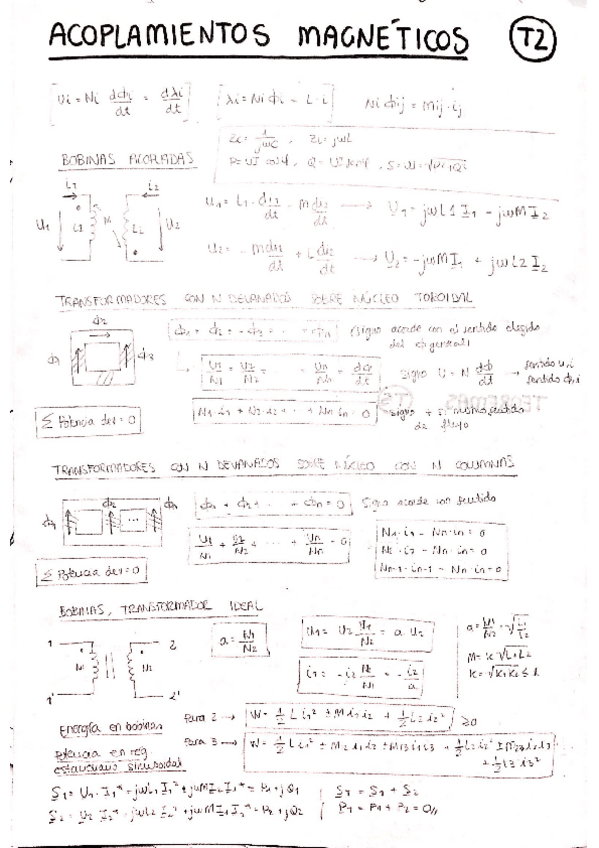 ACOPLAMIENTOS MAGNÉTICOS T2
Ui = Ni dϕi/dt = dλi/dt
λi = Ni ϕi = L · i
Ni ϕij = Mij · ij
Zc = 1/jωC , ZL = jωL
BOBINAS ACOPLADAS
L1 L2 U2
U1 = L1 · di1/dt - M di2/dt → U1 = jωL1 I1 - jωM I2
U2 = - M di1/dt + L di2/dt → U2 = -jωM I1 + jωL2 I2
TRANSFORMADORES CON N DEVANADOS SOBRE NÚCLEO TOROIDAL
ϕ2
ϕ1 ϕ3
ϕ1 = ϕ2 = -ϕ3 = ... = ϕn
signo acorde con el sentido elegido
del ϕ general
U1/N1 = U2/N2 = ... Un/Nn = dϕ/dt
signo U = N dϕ/dt → sentido
sentido
Σ Potencia dev = 0
N1·i1 + N2·i2 + ... + Nn·in = 0
signo + si mismo sentido
de flujo
TEOREMAS T3
TRANSFORMADORES CON N DEVANADOS SOBRE NÚCLEO CON N COLUMNAS
ϕ1 + ϕ2 + ... + ϕn = 0
signo acorde con sentido
U1/N1 + U2/N2 + ... + Un/Nn = 0
N1·i1 - Nn·in = 0
N2·i2 - Nn·in = 0
Nn-1·in-1 - Nn·in = 0
Σ Potencia dev = 0
BOBINAS, TRANSFORMADOR IDEAL
1 2
N1 N2
1' 2'
a = N1/N2
U1 = U2 N1/N2 = a U2
i1 = -i2 N2/N1 = -i2/a
a = N1/N2 = √L1/L2
M = K √L1·L2
K = √K1K2 ≤ 1
Energía en bobinas
Para 2 → W = 1/2 L i1² ± M i1i2 + 1/2 L2 i2² ≥ 0
Para 3 → W = 1/2 L i1²
Potencia en reg.
estacionario sinusoidal
S1 = U1 · I1* = jωL1 I1² + jωM I2 I1* = P1 + jQ1
S2 = U2 I2* = jωL2 I2² + jωM I1 I2* = P2 + jQ2
ST = S1 + S2
PT = P1 + P2 = 0